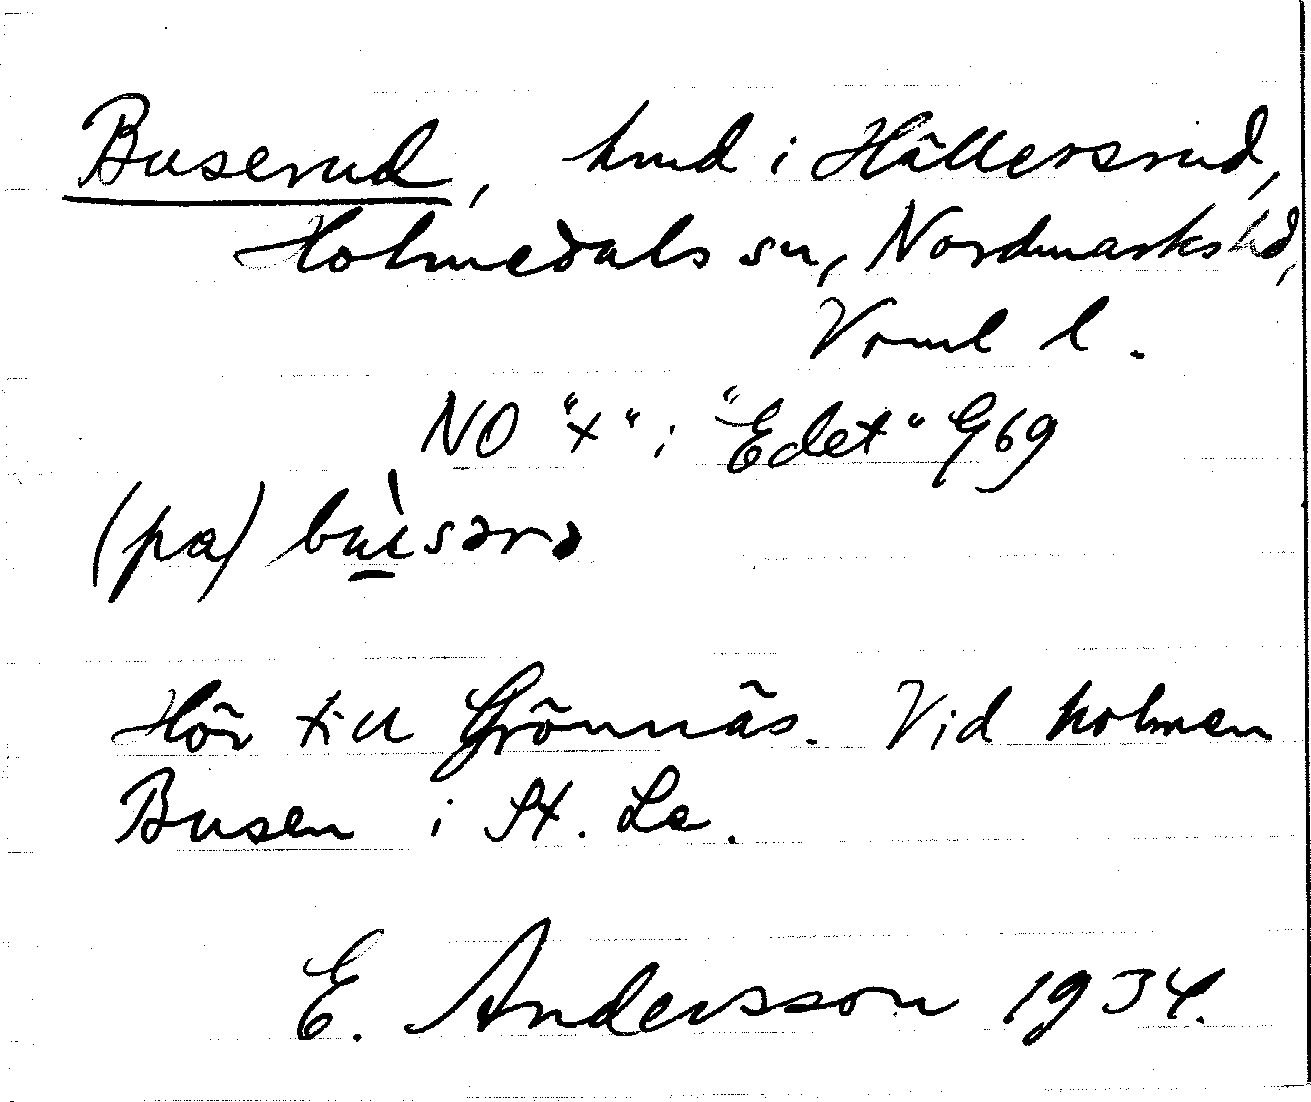 Buserud, hmd i Hällersrud,
Holmedals sn, Nordmarks hd,
Vrml l.
NO "x" i "Edet" G69
(pa)
Hör till Grönnäs. Vid holmen
Busen i St. Le.
E. Andersson 1934.